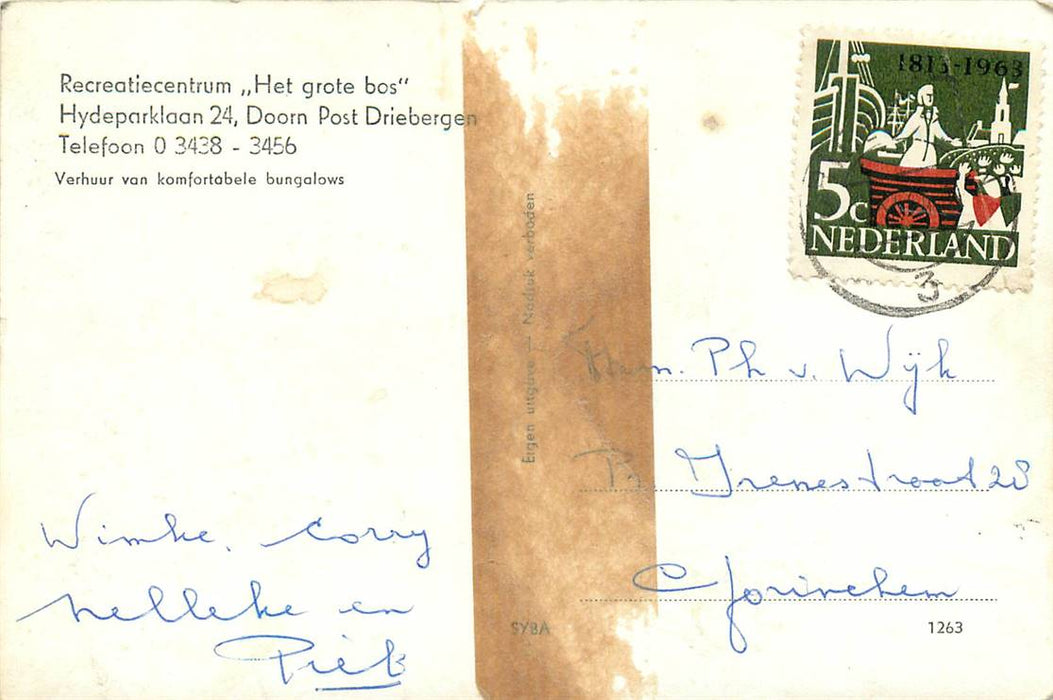 Recreatiecentrum „Het grote bos“
Hydeparklaan 24, Doorn Post Driebergen
Telefoon 0 3438 - 3456
Verhuur van komfortabele bungalows
1813-1963
5c
NEDERLAND
3
Eigen uitgave — Nadruk verboden
Fam. Ph v. Wijk
Pr. Irenestraat 28
Gorinchem
Wimke, Corry
Nelleke en
Piet
SYBA
1263